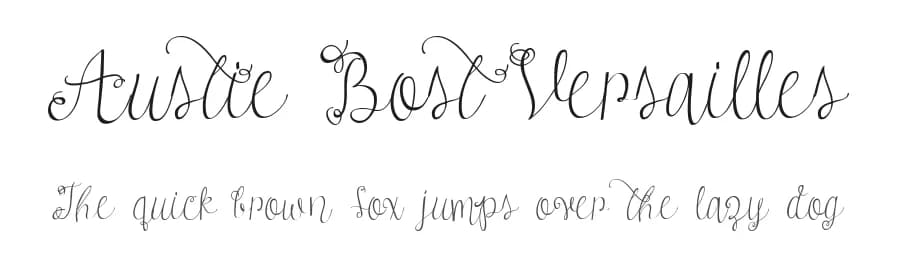 Austie Bost Versailles
The quick brown fox jumps over the lazy dog